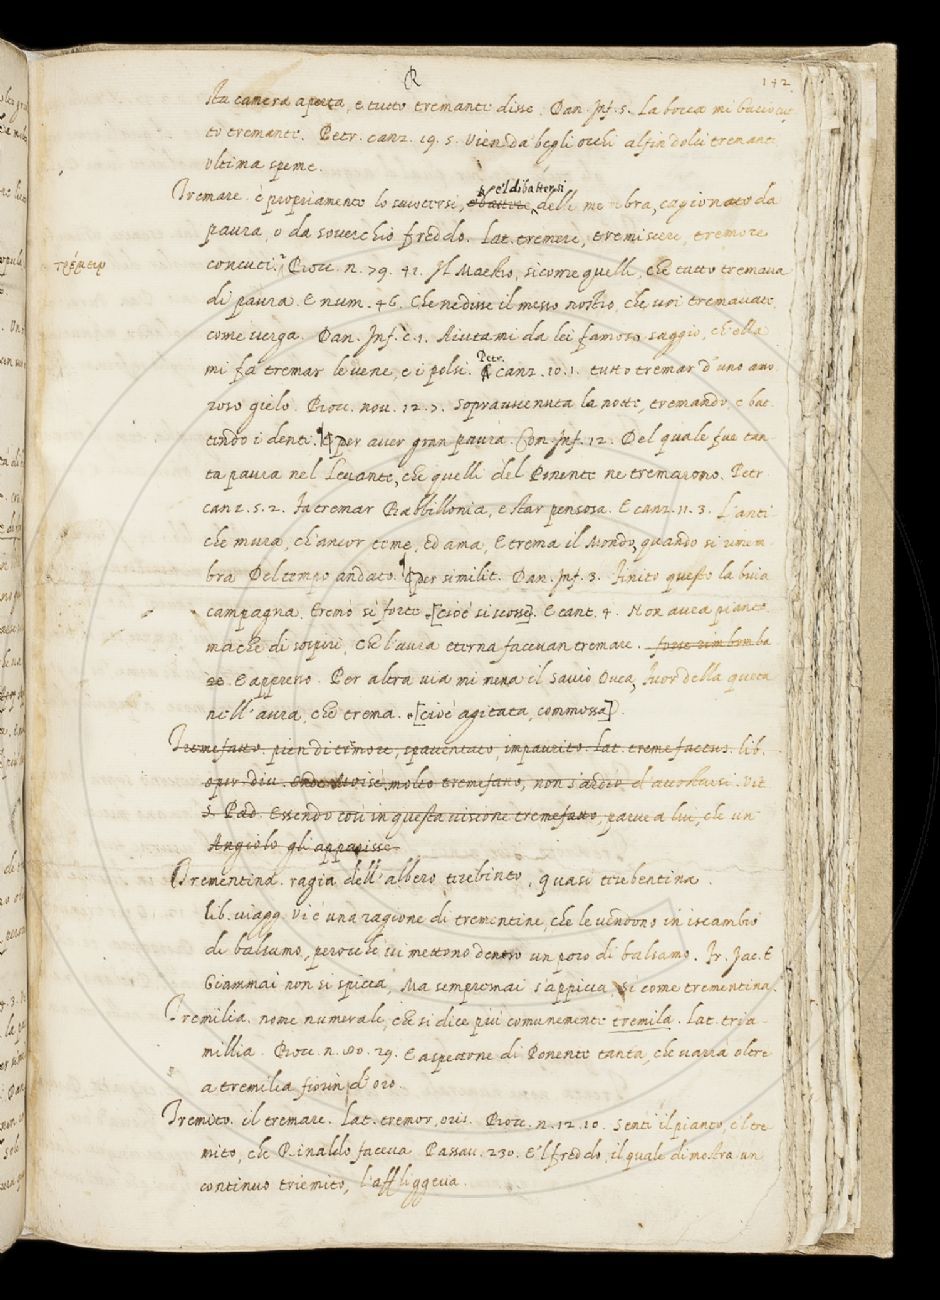 R
142
sta camera aperta, e tutto tremante disse. Dan. Inf. 5. La bocca mi baciò tut
to tremante. Petr. canz. 19. 5. Vien da begli occhi alfin dolci tremanti
ultima speme.
Tremare. è propriamente lo scuotersi, e'l dibattersi delle membra, cagionato da
paura, o da soverchio freddo. Lat. tremere, tremiscere, tremore
τρέμειν
concuti. Bocc. n. 79. 42. Il Maestro, sicome quelli, che tutto tremava
di paura. E num. 46. Che ne disse il messo nostro, che voi tremavate
come verga. Dan. Inf. c. 1. Aiutami da lei famoso saggio, ch'ella
mi fa tremar le vene, e i polsi. Petr. canz. 10. 1. tutto tremar d'uno amo
roso gielo. Bocc. nov. 12. 7. Sopravvenuta la notte, tremando, e bat
tendo i denti. per aver gran paura. Com. Inf. 12. Del quale fue tan
ta paura nel Levante, che quelli del Ponente ne tremarono. Petr
canz. 5. 2. Fa tremar Babbillonia, e star pensosa. E canz. 11. 3. L'anti
che mura, ch'ancor teme, ed ama, E trema il Mondo, quando si rimem
bra Del tempo andato. per similit. Dan. Inf. 3. Finito questo la buia
campagna Tremò sì forte [cioè si scosse]. E cant. 4. Non avea pianto
ma che di sospiri, Che l'aura eterna facevan tremare. forse rimbomba
re. E appresso. Per altra via mi mena il Savio Duca, Fuor della queta
nell'aura, che trema. [cioè agitata, commossa].
Tremefatto pien di tremore, spaventato, impaurito. Lat. tremefactus. lib.
oper. div. Onde Moisè molto tremefatto, non s'ardiv d'accostarsi. Vit.
S. Pad. Essendo così in questa visione tremefatto, parve a lui, che un
Angiolo gli apparisse
Trementina. ragia dell'albero terebinto, quasi terebentina.
lib. viagg. Vi è una ragione di trementine, che le vendono in iscambio
di balsamo, perocchè vi mettono dentro un poco di balsamo. Fr. Jac. T
Giammai non si spicca, Ma sempremai s'appicca, sì come trementina.
Tremilia. nome numerale, che si dice più comunemente tremila. Lat. tria
millia. Bocc. n. 80. 29. E aspettone di Ponente tanta, che varrà oltre
a tremilia fiorin d'oro.
Tremito. il tremare. Lat. tremor, oris. Bocc. n. 12. 10. Sentì il pianto, e'l tre
mito, che Rinaldo faceva. Passav. 230. E'l freddo, il quale dimostra un
continuo triemito, l'affliggeva.